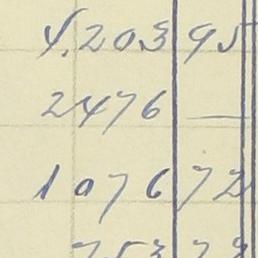 4,203 95
2476 —
1076 72